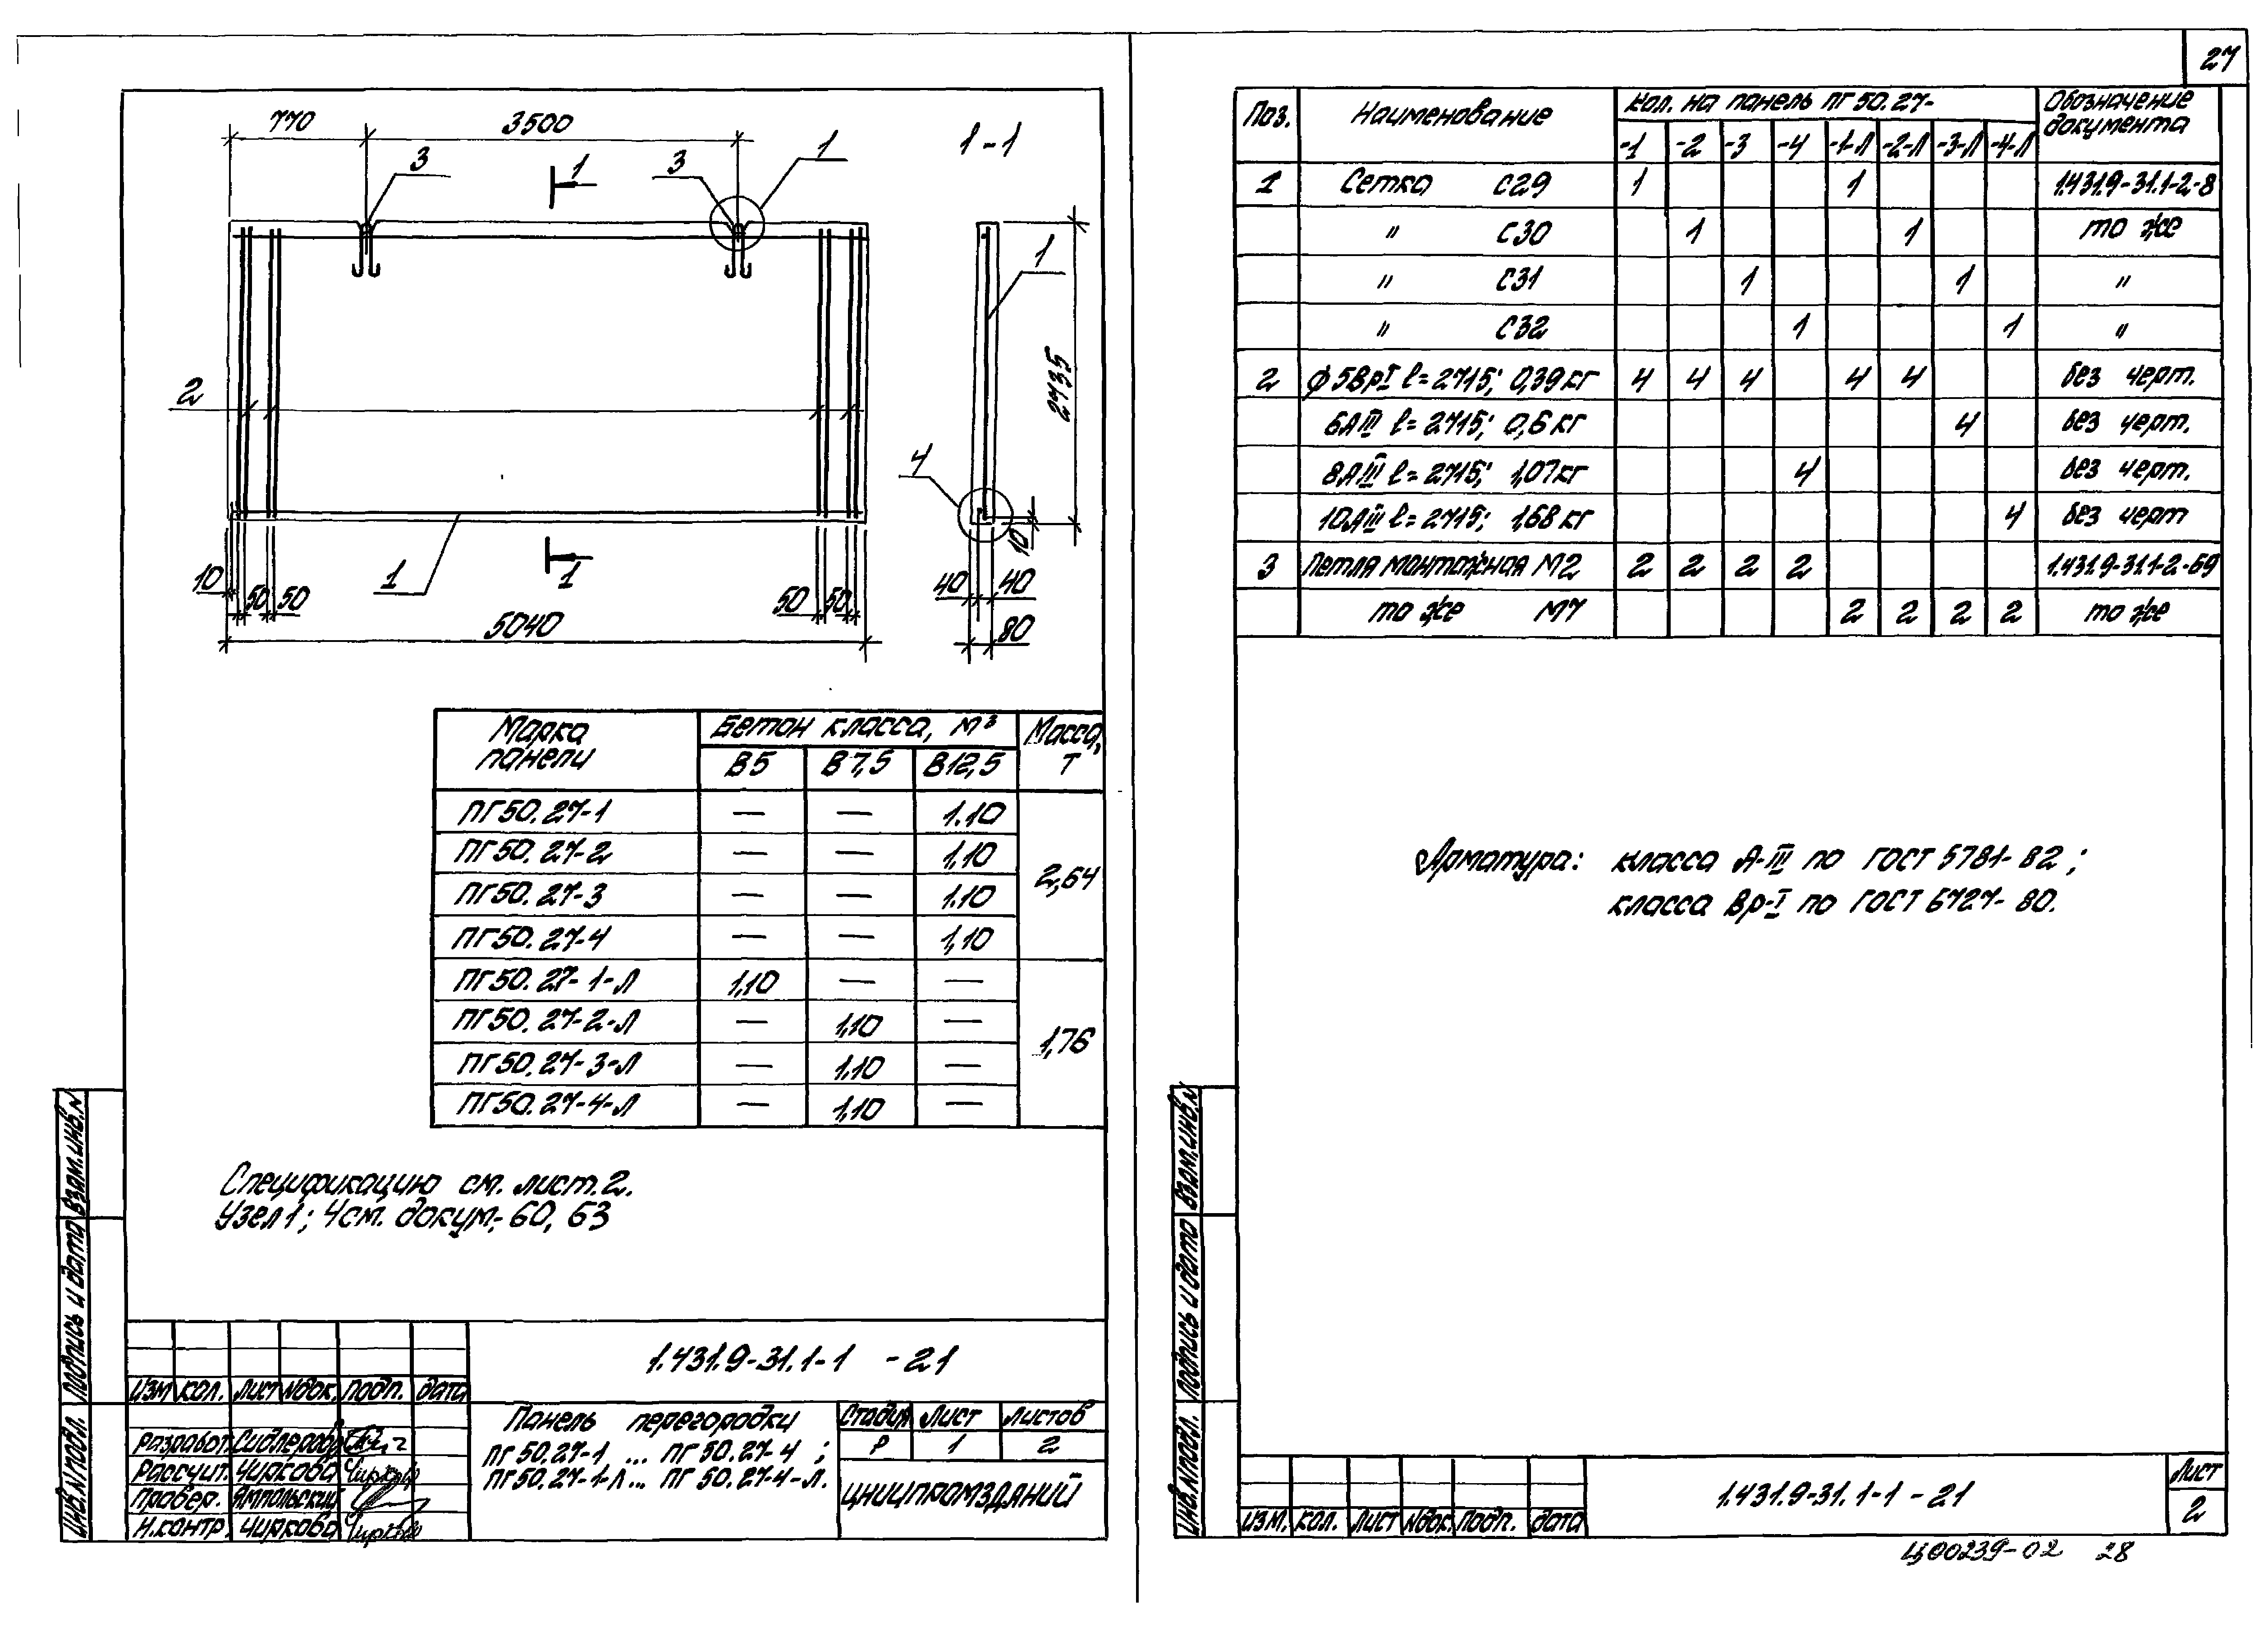 27
770
3500
1
1-1
3
3
1
2
1
2735
4
10
10
50
50
1
1
50
50
40
40
5040
80
Марка панели | Бетон класса, м³ | Масса, т
В5 | В7,5 | В12,5
ПГ50.27-1 — — 1.10
ПГ50.27-2 — — 1,10
ПГ50.27-3 — — 1.10
ПГ50.27-4 — — 1,10
2,64
ПГ50.27-1-Л 1,10 — —
ПГ50.27-2-Л — 1,10 —
ПГ50.27-3-Л — 1.10 —
ПГ50.27-4-Л — 1,10 —
1,76
Спецификацию см. лист.2.
Узел 1; 4 см. докум.-60, 63
Взам.инв.N
Подпись и дата
Инв.N подл.
1.431.9-31.1-1 -21
Изм кол. Лист Nдок. Подп. Дата
Разработ.
Рассчит. Чиркова
Провер. Ямпольский
Н.контр. Чиркова
Панель перегородки
ПГ 50.27-1 ... ПГ 50.27-4 ;
ПГ50.27-1-Л ... ПГ 50.27-4-Л.
Стадия Лист Листов
Р 1 2
ЦНИИПРОМЗДАНИЙ
Поз. | Наименование | Кол. на панель ПГ 50.27- | Обозначение документа
-1 -2 -3 -4 -1-Л -2-Л -3-Л -4-Л
1 Сетка С29 1 1 1.431.9-31.1-2-8
" С30 1 1 то же
" С31 1 1 "
" С32 1 1 "
2 ϕ 5ВрI ℓ=2715; 0,39кг 4 4 4 4 4 без черт.
6АIII ℓ=2715; 0,6 кг 4 без черт.
8АIII ℓ=2715; 1,07кг 4 без черт.
10АIII ℓ=2715; 1,68 кг 4 без черт
3 Петля монтажная М2 2 2 2 2 1.431.9-31.1-2-69
то же М7 2 2 2 2 то же
Арматура: класса А-III по ГОСТ 5781-82;
класса Вр-I по ГОСТ 6727-80.
Взам.инв.N
Подпись и дата
Инв.N подл.
Изм. кол. Лист Nдок. Подп. Дата
1.431.9-31.1-1 -21
Лист
2
Ц00239-02 28